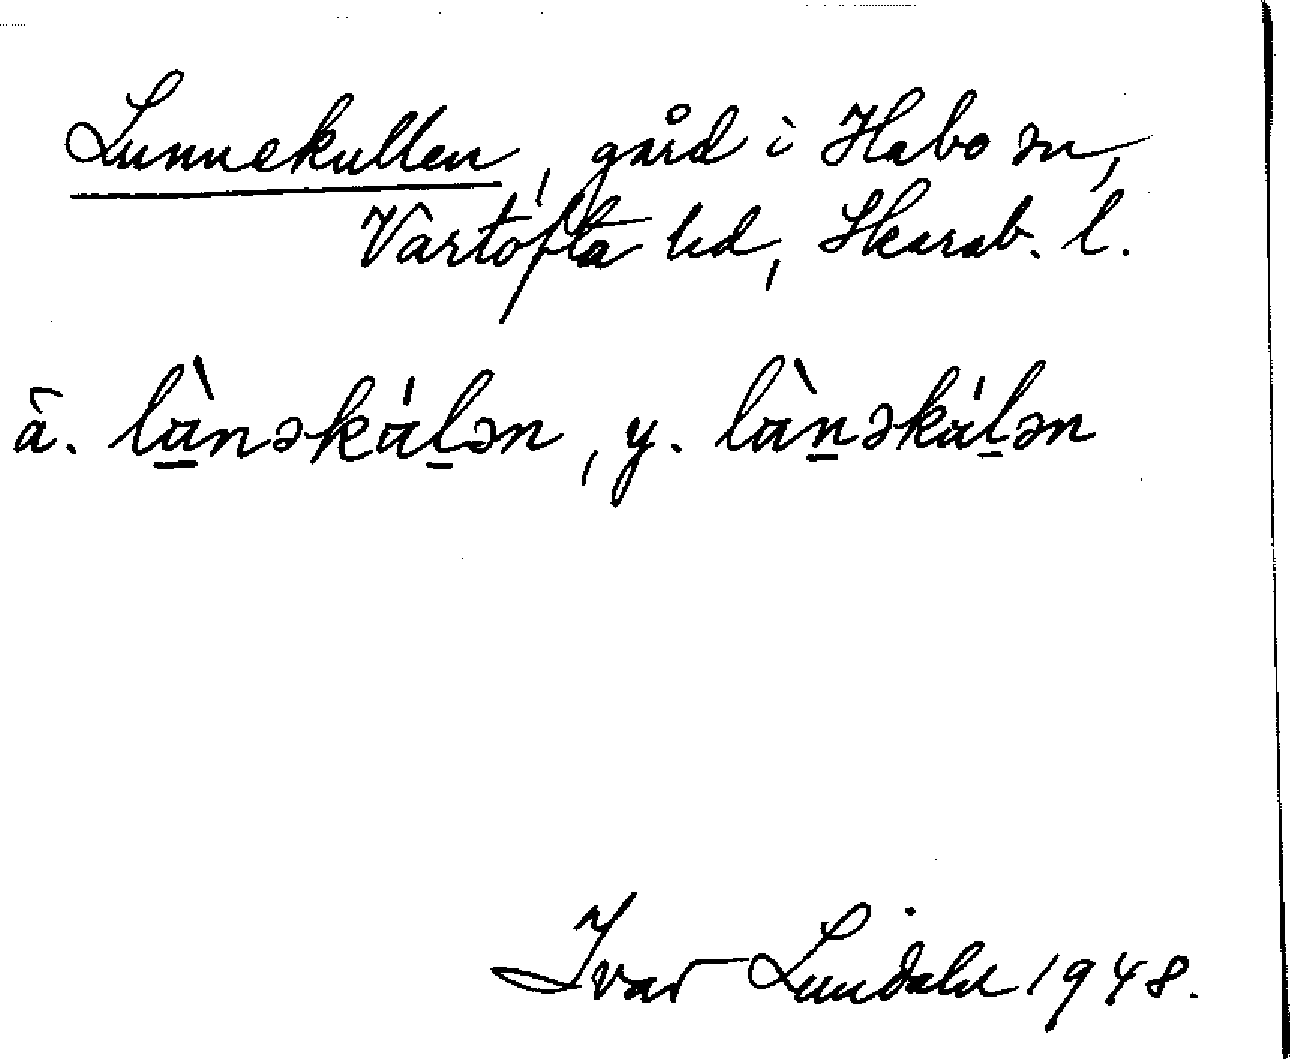 Lunnekullen, gård i Habo sn,
Vartofta hd, Skarab. l.
ä. lὰ̱nəkάḻən, y. lὰṉəkάḻən
Ivar Lundahl 1948.